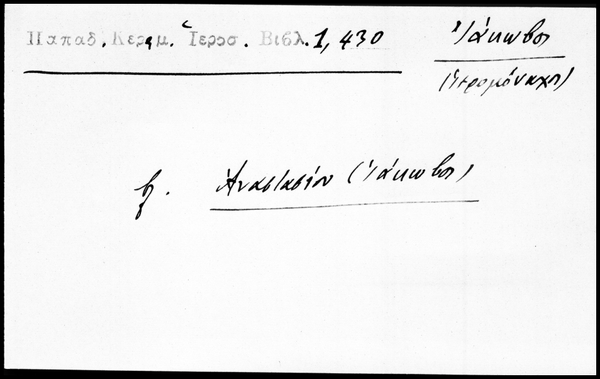 Παπαδ. Κεραμ. Ἱεροσ. Βιβλ. 1, 430
Ἰάκωβος
(Ἱερομόναχος)
βλ. Ἀναστασίου (Ἰάκωβος)